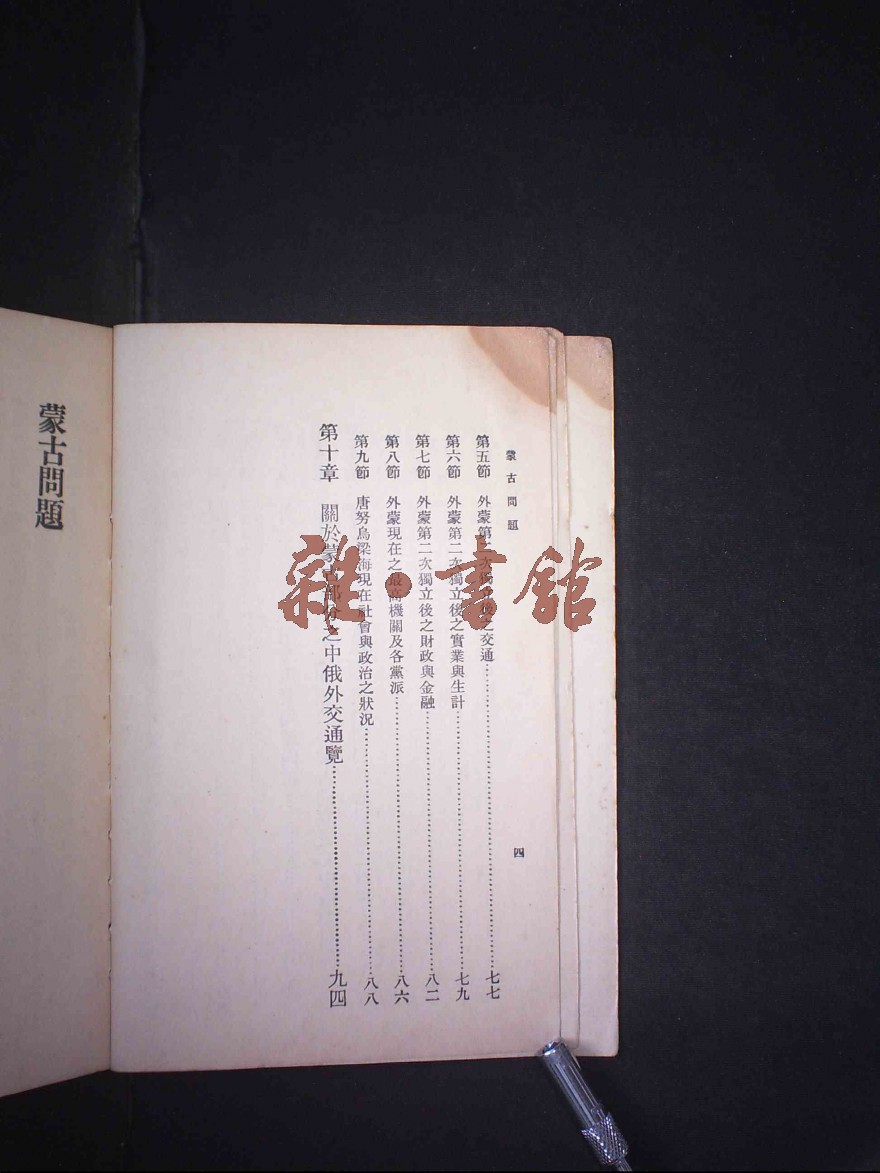 蒙古問題
四
第五節 外蒙第二次獨立後之交通 七七
第六節 外蒙第二次獨立後之實業與生計 七九
第七節 外蒙第二次獨立後之財政與金融 八二
第八節 外蒙現在之最高機關及各黨派 八六
第九節 唐努烏梁海現在社會與政治之狀況 八八
第十章 關於蒙古部分之中俄外交通覽 九四
蒙古問題
雜·書館